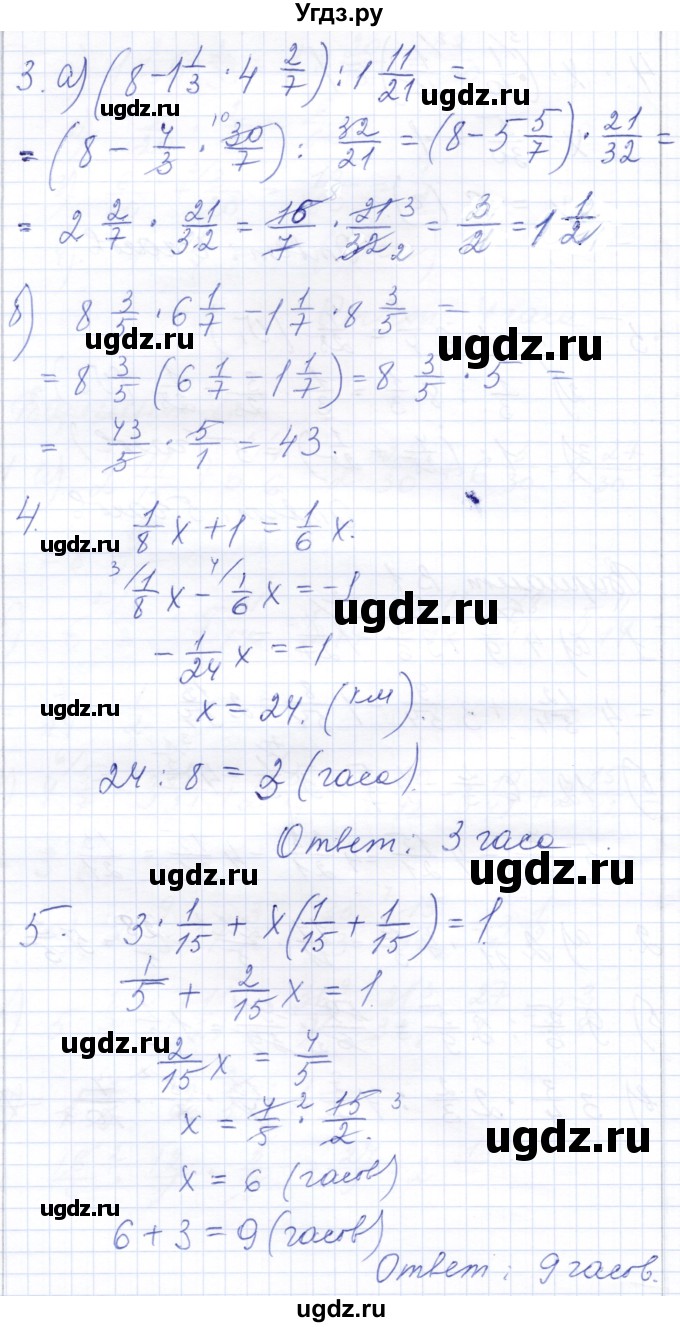 Угдз.ру
3. а) (8 - 1 1/3 · 4 2/7) : 1 11/21 =
ugdz.ru ugdz.ru
= (8 - 4/3 · 30/7 10) : 32/21 = (8 - 5 5/7) · 21/32 =
= 2 2/7 · 21/3.2 = 16/7 · 21 3/32 2 = 3/2 = 1 1/2
ugdz.ru ugdz.ru
б) 8 3/5 · 6 1/7 - 1 1/7 · 8 3/5 =
ugdz.ru ugdz.ru
= 8 3/5 (6 1/7 - 1 1/7) = 8 3/5 · 5 =
= 43/5 · 5/1 = 43.
ugdz.ru
4. 1/8 x + 1 = 1/6 x.
ugdz.ru
3/ 1/8 x - 4/ 1/6 x = -1
ugdz.ru
- 1/24 x = -1
ugdz.ru
x = 24. (км).
24 : 8 = 3 (часа).
Ответ: 3 часа.
ugdz.ru ugdz.ru
5. 3 · 1/15 + x(1/15 + 1/15) = 1.
1/5 + 2/15 x = 1
ugdz.ru
2/15 x = 4/5
x = 4/5 2 · 15/2. 3
ugdz.ru
x = 6 (часов)
ugdz.ru
6 + 3 = 9 (часов)
Ответ: 9 часов.
ugdz.ru